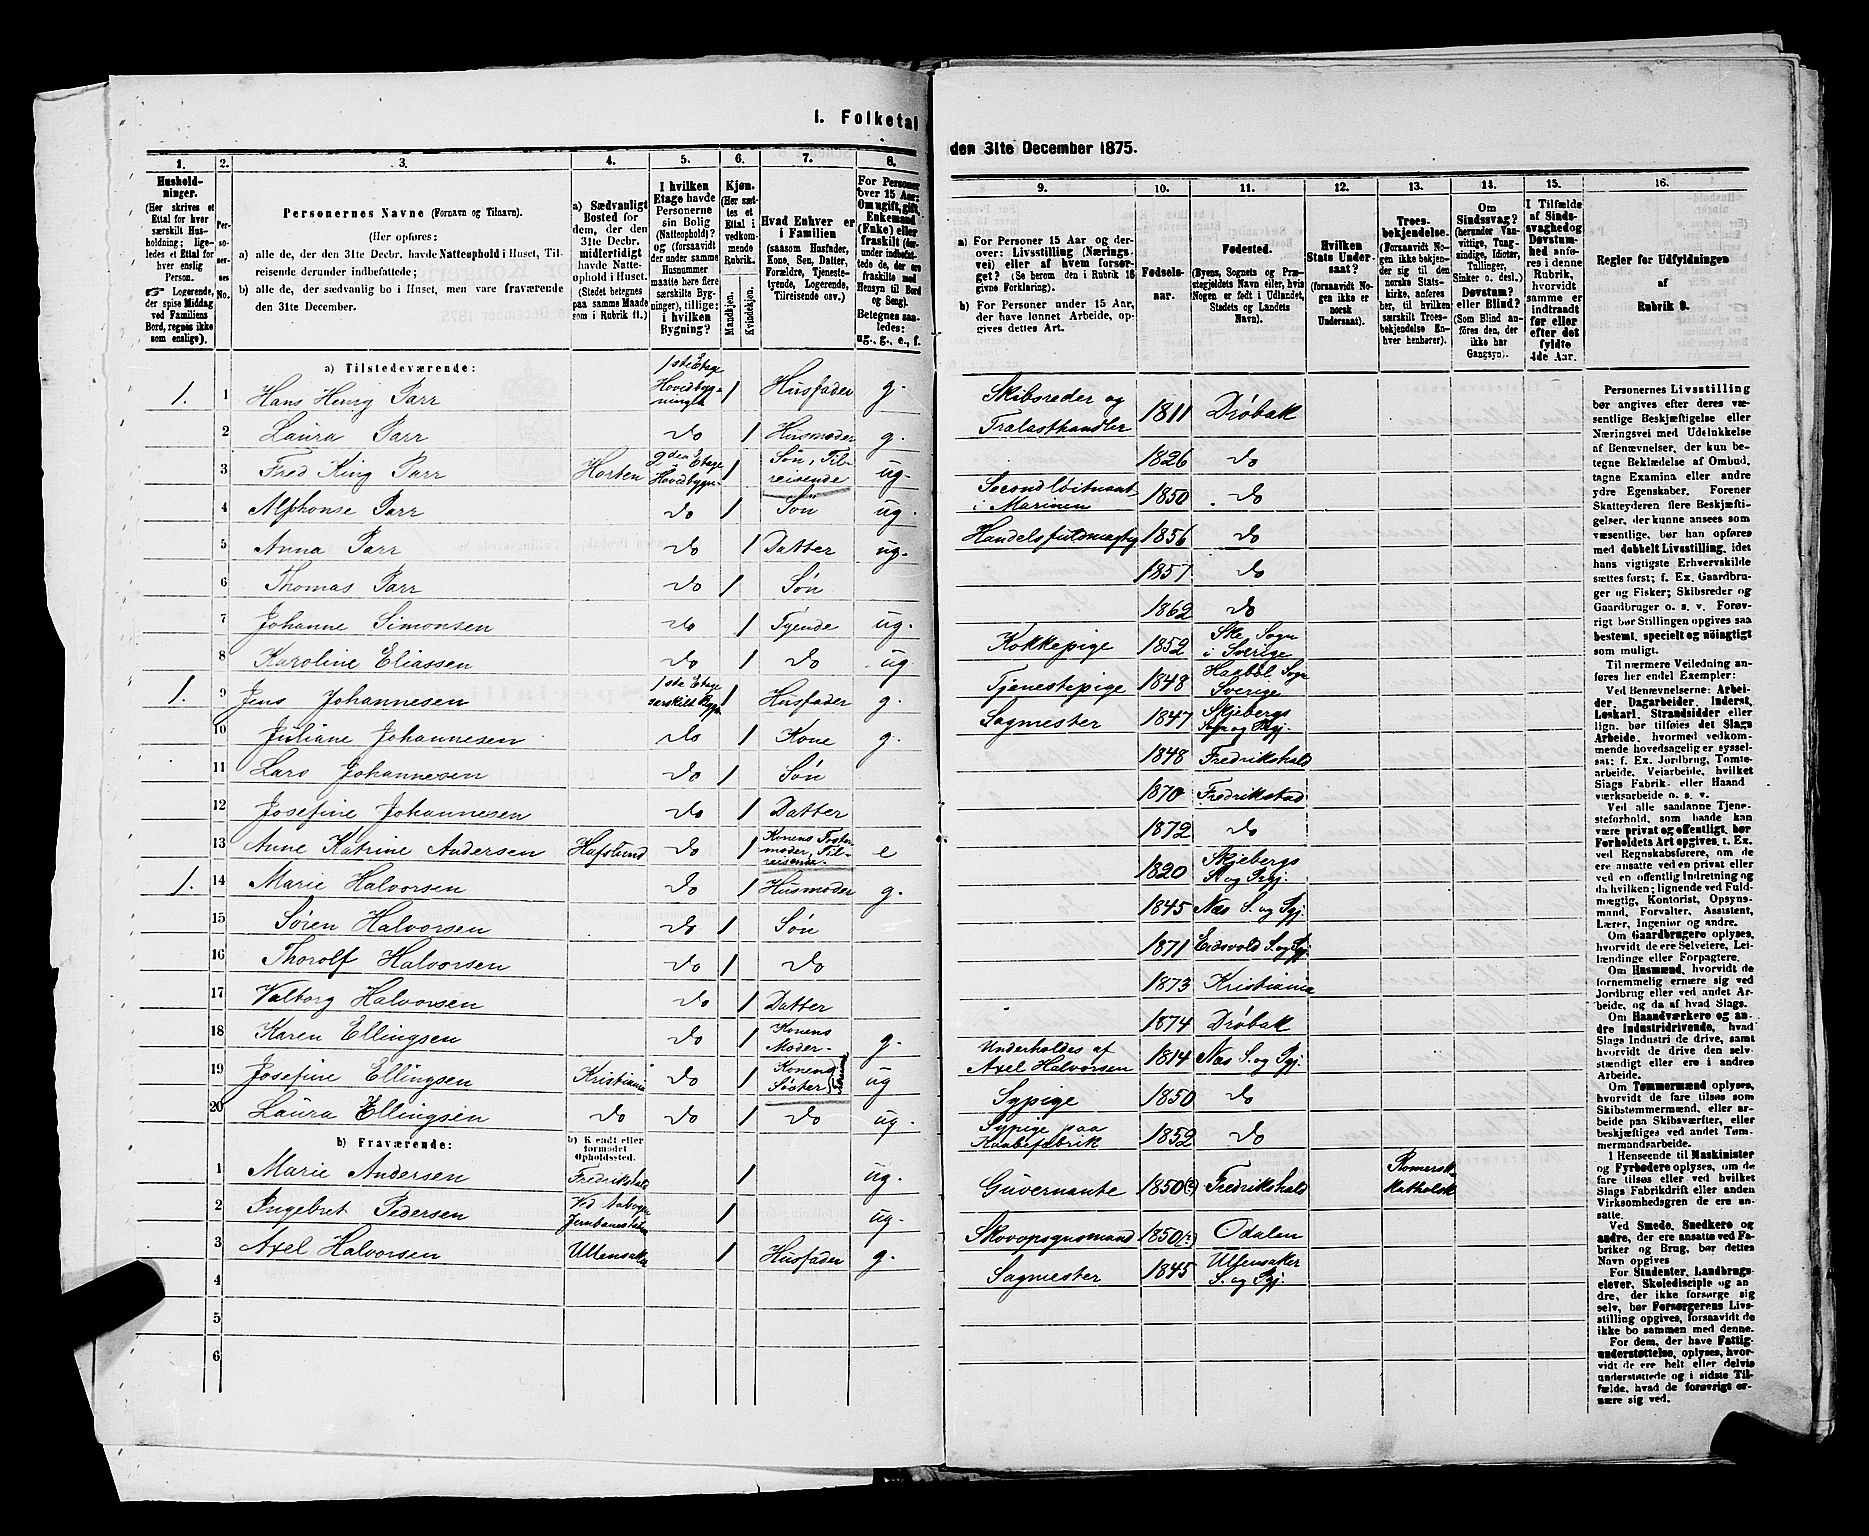 I. Folketal
den 31te December 1875.
1. 2. 3. 4. 5. 6. 7. 8.
9. 10. 11. 12. 13. 14. 15. 16.
Husholdninger. (Her skrives et Ettal for hver særskilt Husholdning; ligeledes et Ettal for hver enslig Person. ☞ Logerende, der spise Middag ved Familiens Bord, regnes ikke som enslige).
Personernes No.
Personernes Navne (Fornavn og Tilnavn).
(Her opføres:
a) alle de, der den 31te Decbr. havde Natteophold i Huset, Tilreisende derunder indbefattede;
b) alle de, der sædvanlig bo i Huset, men vare fraværende den 31te December.
a) Sædvanligt Bosted for dem, der den 31te Decbr. midlertidigt havde Natteophold i Huset. (Stedet betegnes paa samme Maade som i Rubrik 11.)
I hvilken Etage havde Personerne sin Bolig (Natteophold)? og (forsaavidt der under samme Husnummer maatte høre flere særskilte Bygninger), tillige: i hvilken Bygning?
Kjøn. (Her sættes et Ettal i vedkommende Rubrik.
Mandkjøn. Kvindekjøn.
Hvad Enhver er i Familien (saasom Husfader, Kone, Søn, Datter, Forældre, Tjenestetyende, Logerende, Tilreisende osv.)
For Personer over 15 Aar: Om ugift, gift, Enkemand (Enke) eller fraskilt (derunder indbefattede de, der ere fraskilte med Hensyn til Bord og Seng). Betegnes saaledes: ug., g., e., f.
a) For Personer 15 Aar og derover: Livsstilling (Næringsvei) eller af hvem forsørget? (Se herom den i Rubrik 16 givne Forklaring).
b) For Personer under 15 Aar, der have lønnet Arbeide, opgives dettes Art.
Fødselsaar.
Fødested. (Byens, Sognets og Præstegjeldets Navn eller, hvis Nogen er født i Udlandet, Stedets og Landets Navn).
Hvilken Stats Undersaat? (forsaavidt Nogen ikke er norsk Undersaat).
Troesbekjendelse. (Forsaavidt Nogen ikke bekjender sig til den norske Statskirke, anføres her, til hvilken særskilt Troesbekjendelse Enhver henhører).
Om Sindssvag? (herunder Vanvittige, Tungsindige, Idioter, Tullinger, Sinker o. desl.) Døvstum? eller Blind? (Som Blind anføres den, der ikke har Gangsyn).
I Tilfælde af Sindssvaghed og Døvstumhed anføres i denne Rubrik, hvorvidt samme er indtraadt før eller efter det fyldte 4de Aar.
Regler for Udfyldningen af Rubrik 9.
a) Tilstedeværende:
1. 1 Hans Henrig Parr 1ste Etage Hovedbygningen 1 Husfader g. Skibsreder og Trælasthandler 1811 Drøbak
2 Laura Parr Do 1 Husmoder g. 1826 Do
3 Fred King Parr Horten 2den Etage Hovedbygn. 1 Søn, Tilreisende ug. Secondløitnant i Marinen 1850 Do
4 Alphonse Parr Do 1 Søn ug. Handelsfuldmægtig 1856 Do
5 Anna Parr Do 1 Datter ug. 1857 Do
6 Thomas Parr Do 1 Søn 1862 Do
7 Johanne Simonsen Do 1 Tyende ug. Kokkepige 1852 Ske Sogn i Sverige
8 Karoline Eliassen Do 1 Do ug. Tjenestepige 1848 Sogn Sverige
1. 9 Jens Johannesen 1ste Etage særskilt Bygn. 1 Husfader g. Sagmester 1847 Skjebergs Sogn og Prgj.
10 Juliane Johannesen Do 1 Kone g. 1848 Fredrikshald
11 Lars Johannesen Do 1 Søn 1870 Fredrikstad
12 Josefine Johannesen Do 1 Datter 1872 Do
13 Anne Katrine Andersen Hafslund Do 1 Konens Fostermoder, Tilreisende e 1820 Skjebergs S. og Prgj.
1. 14 Marie Halvorsen Do 1 Husmoder g. 1845 Næs S. og Pgj.
15 Søren Halvorsen Do 1 Søn 1871 Eidsvold S. og Pgj.
16 Thorolf Halvorsen Do 1 Do 1873 Kristiania
17 Valborg Halvorsen Do 1 Datter 1874 Drøbak
18 Karen Ellingsen Do 1 Konens Moder g. Underholdes af Axel Halvorsen 1814 Næs S. og Pgj.
19 Josefine Ellingsen Kristiania Do 1 Konens Søster ug Sypige 1850 Do
20 Laura Ellingsen Do Do 1 Do ug. Sypige paa Kaabefabrik 1852 Do
b) Fraværende: b) Kjendt eller formodet Opholdssted.
1 Marie Andersen Fredrikshald 1 ug. Guvernante 1850(?) Fredrikshald Romersk katholsk
2 Ingebret Pedersen Ved Jernbanestation 1 ug. Skovopsynsmand 1850(?) Odalen
3 Axel Halvorsen Ullensaker 1 Husfader g. Sagmester 1845 Ullensaker S. og Pgj.
4
5
6
Personernes Livsstilling
bør angives efter deres væ-
sentlige Beskjæftigelse eller
Næringsvei med Udelukkelse
af Benævnelser, der kun be-
tegne Beklædelse af Ombud,
tagne Examina eller andre
ydre Egenskaber. Forener
Skatteyderen flere Beskjæfti-
gelser, der kunne ansees som
væsentlige, bør han opføres
med dobbelt Livsstilling, idet
hans vigtigste Erhvervskilde
sættes først; f. Ex. Gaardbru-
ger og Fisker; Skibsreder og
Gaardbruger o. s. v. Forøv-
rigt bør Stillingen opgives saa
bestemt, specielt og nøiagtigt
som muligt.
Til nærmere Veiledning an-
føres her endel Exempler:
Ved Benævnelserne: Arbei-
der, Dagarbeider, Inderst,
Løskarl, Strandsidder eller
lign. bør tilføies det Slags
Arbeide, hvormed vedkom-
mende hovedsagelig er syssel-
sat; f. Ex. Jordbrug, Tomte-
arbeide, Veiarbeide, hvilket
Slags Fabrik- eller Haand
værksarbeide o. s. v.
Ved alle saadanne Tjene-
steforhold, som baade kan
være privat og offentligt, bør
Forholdets Art opgives, t. Ex.
ved Regnskabsførere, om de
ere ansatte ved en privat eller
ved en offentlig Indretning og
da hvilken; lignende ved Fuld-
mægtig, Kontorist, Opsyns-
mand, Forvalter, Assistent,
Lærer, Ingeniør og andre.
Om Gaardbrugere oplyses,
hvorvidt de ere Selveiere, Lei-
lændinge eller Forpagtere.
Om Husmænd, hvorvidt de
fornemmelig ernære sig ved
Jordbrug eller ved andet Ar-
beide, og da af hvad Slags.
Om Haandværkere og an-
dre Industridrivende, hvad
Slags Industri de drive, samt
hvorvidt de drive den selv-
stændigt eller ere i andres
Arbeide.
Om Tømmermænd oplyses,
hvorvidt de fare tilsøs som
Skibstømmermænd, eller ar-
beide paa Skibsværfter, eller
beskjæftiges ved andet Tøm-
mermandsarbeide.
I Henseende til Maskinister
og Fyrbødere oplyses, om de
fare tilsøs eller ved hvilket
Slags Fabrikdrift eller anden
Virksomhedsgren de ere an-
satte.
Ved Smede, Snedkere og
andre, der ere ansatte ved Fa-
briker og Brug, bør dettes
Navn opgives
For Studenter, Landbrugs-
elever, Skoledisciple og an-
dre, der ikke forsørge sig
selv, bør Forsørgerens Livs-
stilling opgives, forsaavidt de
ikke bo sammen med denne.
For dem, der have Fattig-
understøttelse, oplyses, hvor-
vidt de ere helt eller delvis
understøttede og i sidste Til-
fælde, hvad de forøvrigt er-
nære sig ved.